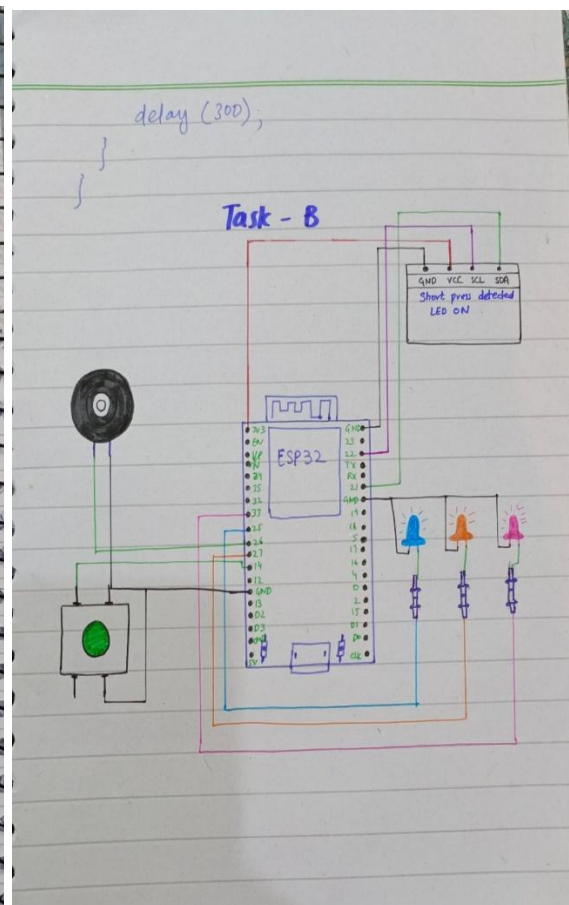 delay (300);
}
}
Task - B
GND VCC SCL SDA
Short press detected
LED ON
ESP32
3V3
EN
VP
34
35
32
33
25
26
27
14
12
GND
13
D2
D3
5V
GND
23
22
Tx
Rx
21
GND
19
18
5
17
16
4
0
2
15
D1
D0
CLK